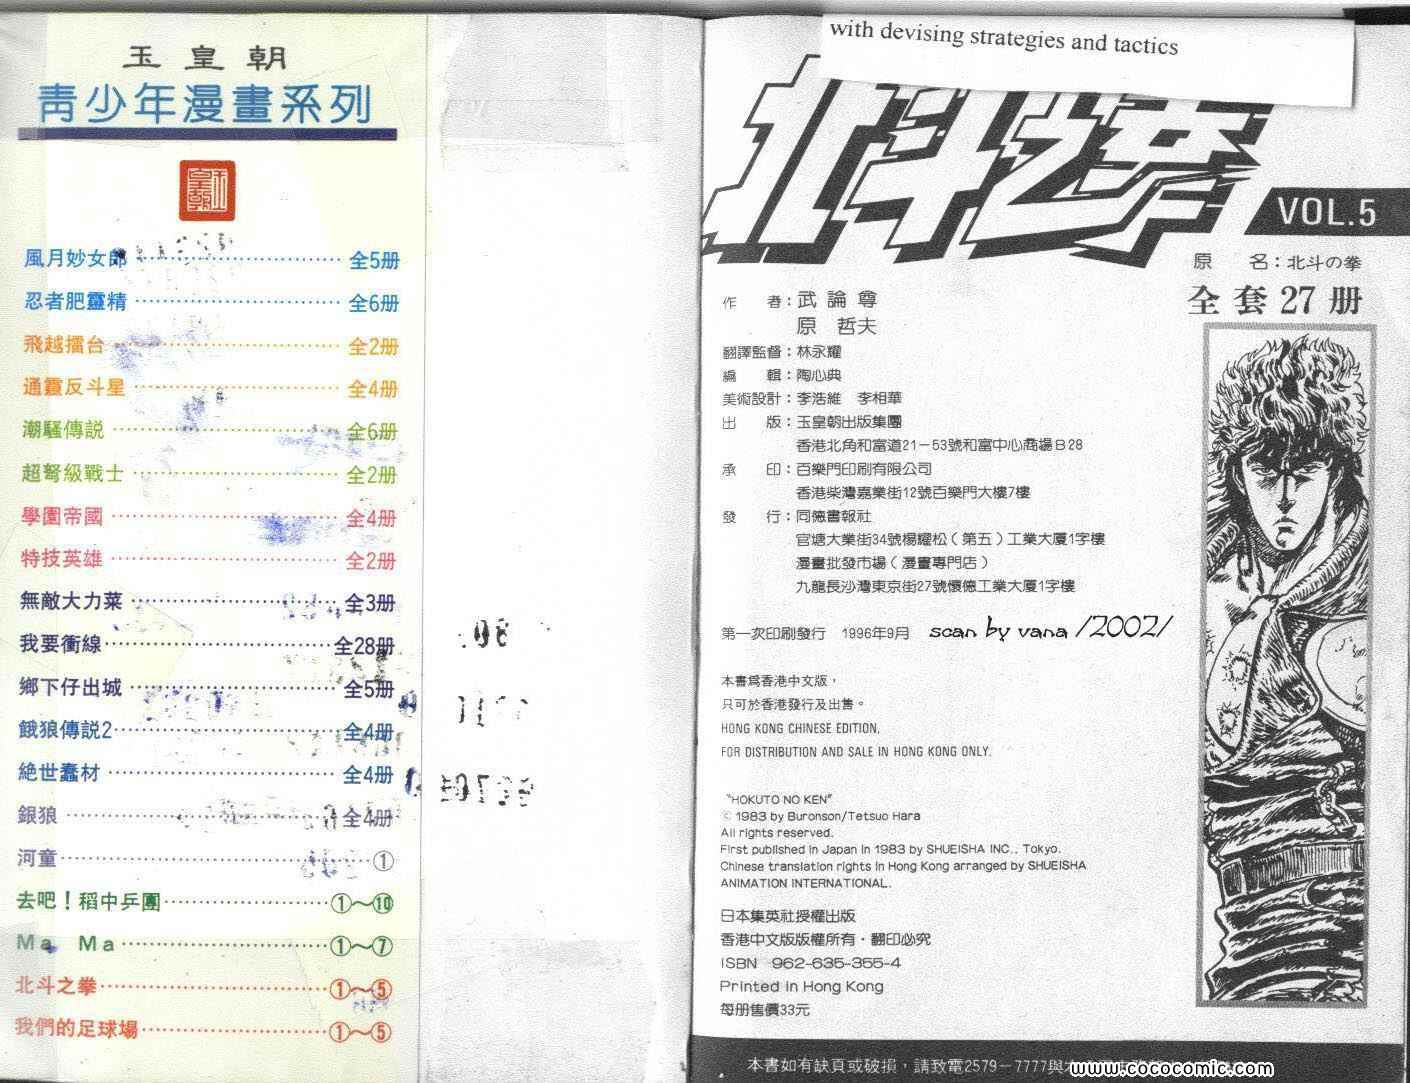 玉皇朝
青少年漫畫系列
玉皇朝
風月妙女郎 全5册
忍者肥靈精 全6册
飛越擂台 全2册
通靈反斗星 全4册
潮騷傳説 全6册
超弩級戰士 全2册
學園帝國 全4册
特技英雄 全2册
無敵大力菜 全3册
我要衝線 全28册
鄉下仔出城 全5册
餓狼傳説2 全4册
絶世蠢材 全4册
銀狼 全4册
河童 ①
去吧！稻中乒團 ①～⑩
Ma Ma ①～⑦
北斗之拳 ①～⑤
我們的足球場 ①～⑤
with devising strategies and tactics
北斗之拳
VOL.5
原 名：北斗の拳
全套27册
作 者：武論尊
原 哲夫
翻譯監督：林永耀
編 輯：陶心典
美術設計：李浩維 李相華
出 版：玉皇朝出版集團
香港北角和富道21－53號和富中心商場B28
承 印：百樂門印刷有限公司
香港柴灣嘉業街12號百樂門大樓7樓
發 行：同德書報社
官塘大業街34號楊耀松（第五）工業大廈1字樓
漫畫批發市場（漫畫專門店）
九龍長沙灣東京街27號懷德工業大廈1字樓
第一次印刷發行 1996年9月 scan by vana /2002/
本書爲香港中文版，
只可於香港發行及出售。
HONG KONG CHINESE EDITION,
FOR DISTRIBUTION AND SALE IN HONG KONG ONLY.
"HOKUTO NO KEN"
© 1983 by Buronson/Tetsuo Hara
All rights reserved.
First published in Japan in 1983 by SHUEISHA INC., Tokyo.
Chinese translation rights in Hong Kong arranged by SHUEISHA
ANIMATION INTERNATIONAL.
日本集英社授權出版
香港中文版版權所有・翻印必究
ISBN 962-635-355-4
Printed in Hong Kong
每册售價33元
本書如有缺頁或破損，請致電2579－7777與
www.cococomic.com